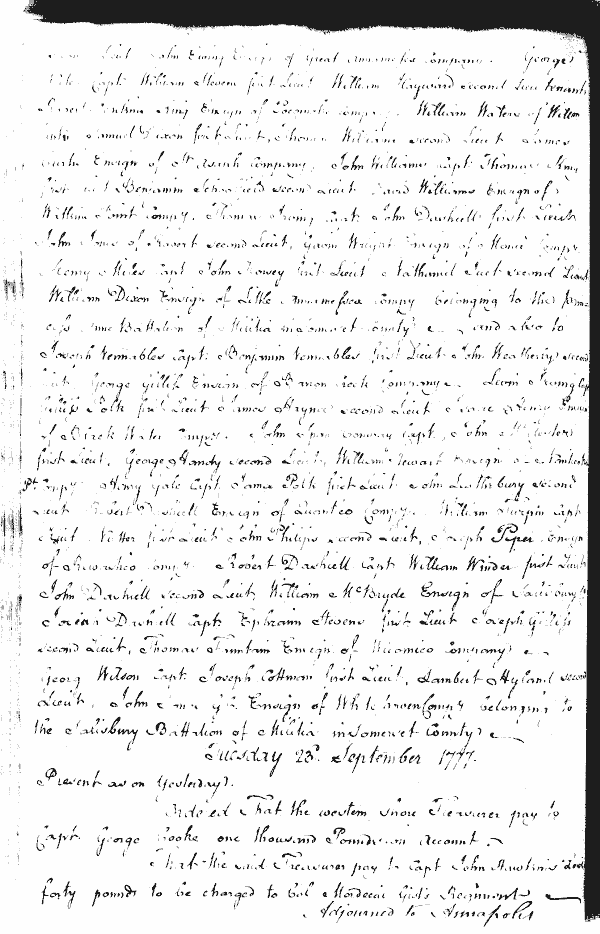 Lieut John Ewing Ensign of Great Annamessex Company. George
Capt William Stevens first Lieut William Hayward second Lieutenant
Ensign of Pocomoke Company William Waters of Willm
Samuel Dixon first Lieut, Thomas Williams second Lieut James
Ensign of St Asaph Company, John Williams Capt Thomas King
first Lieut Benjamin Schoolfield second Lieut David Williams Ensign of
Williams Point Compy. Thomas Irving Capt John Dashiell first Lieut
John Jones of Robert second Lieut, Gavin Wright Ensign of Monie Compy
Henry Miles Capt John Rowsey first Lieut Nathaniel second Lieut
William Dixon Ensign of Little Annamessex Compy belonging to the Prin
cess Anne Battalion of Militia in Somerset County and also to
Joseph Vennables Capt Benjamin Vennables first Lieut John Weatherly second
Lieut George Gilliss Ensign of Baron Creek Company Levin Capt
Gilliss Polk first Lieut James Hayne second Lieut Isaac Henry Ensign
of Black Water Compy. John Span Conway Capt, John McCluster
first Lieut, George Handy second Lieut, William Stewart Ensign of Nanticoke
Pt Compy Henry Gale Capt James Polk first Lieut John Leatherbury second
Lieut Robert Dashiell Ensign of Quantico Compy William Turpin Capt
Nutter first Lieut John Philips second Lieut, Joseph Piper Ensign
of Rewastico Compy Robert Dashiell Capt William Winder first Lieut
John Dashiell second Lieut William McBryde Ensign of Salisbury
Josiah Dashiell Capt Ephraim Stevens first Lieut Joseph Gilliss
second Lieut, Thomas Fountain Ensign of Wicomico Company
Georg Wilson Capt Joseph Cottman first Lieut, Lambert Hyland second
Lieut, John Ensign of White haven Compy belonging to
the Salisbury Battalion of Militia in Somerset County
Tuesday 23d. September 1777.
Present as on Yesterday.
Ordered That the western shore Treasurer pay to
Capt. George Cooke one thousand Pounds on Account
That the said Treasurer pay to Capt John Hawkins
forty pounds to be charged to Col Mordecai Gist's Regiment
Adjourned to Annapolis